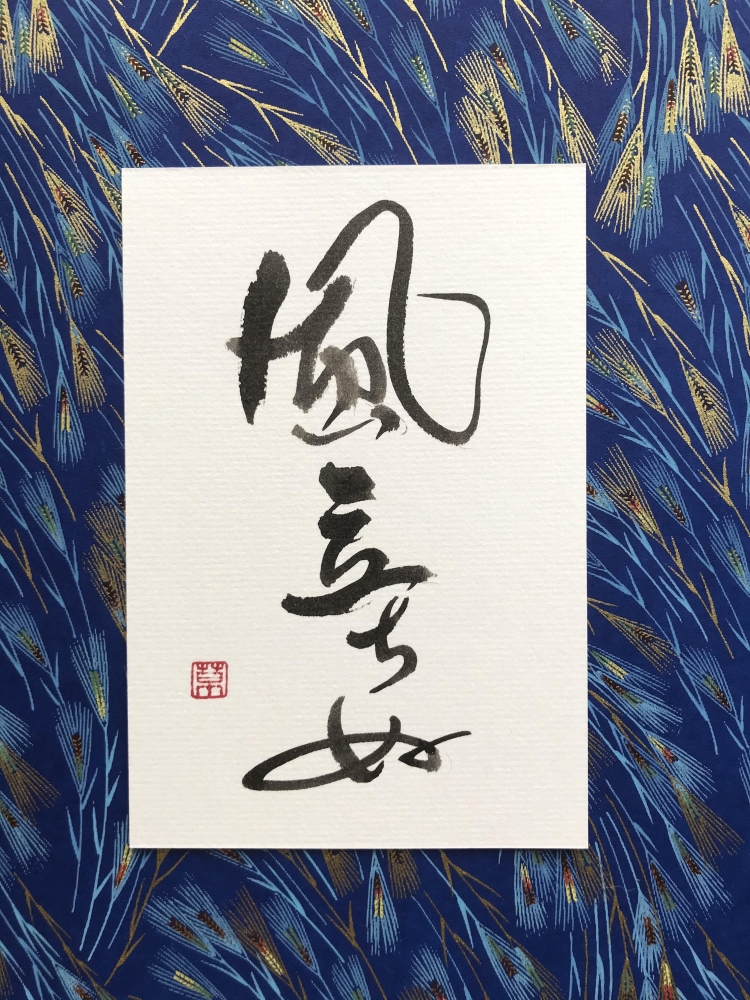 風立ちぬ